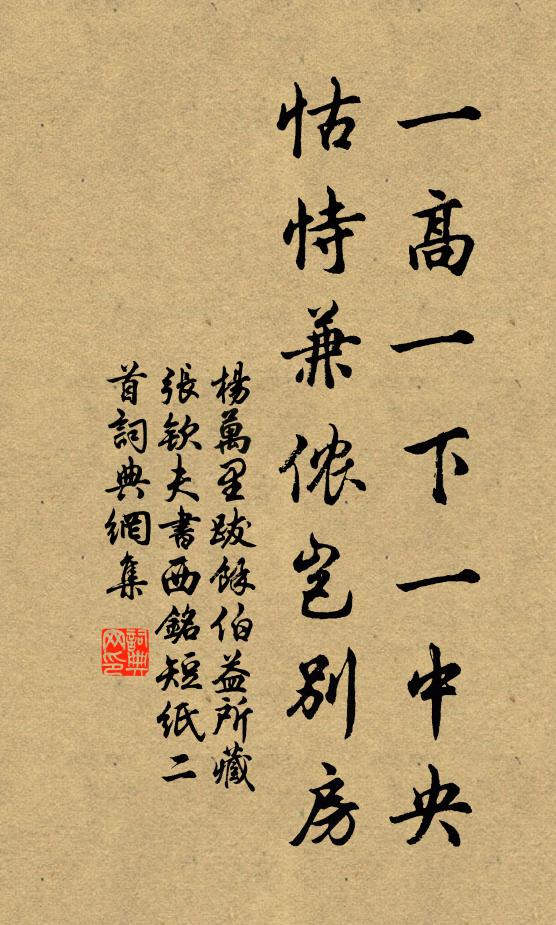 一高一下一中央
怙恃兼儂豈別房
楊萬里跋餘伯益所藏
張欽夫書西銘短紙二
首詞典網集
詞典
网印